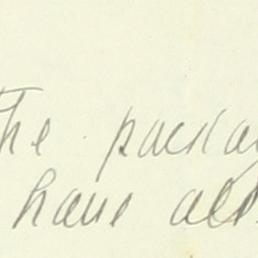 The packag
have all